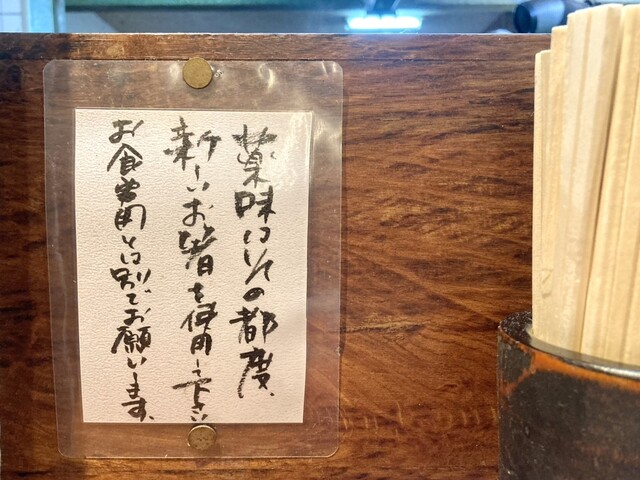 薬味はその都度、
新しいお箸を使用して下さい
お食事用とは別でお願いします。